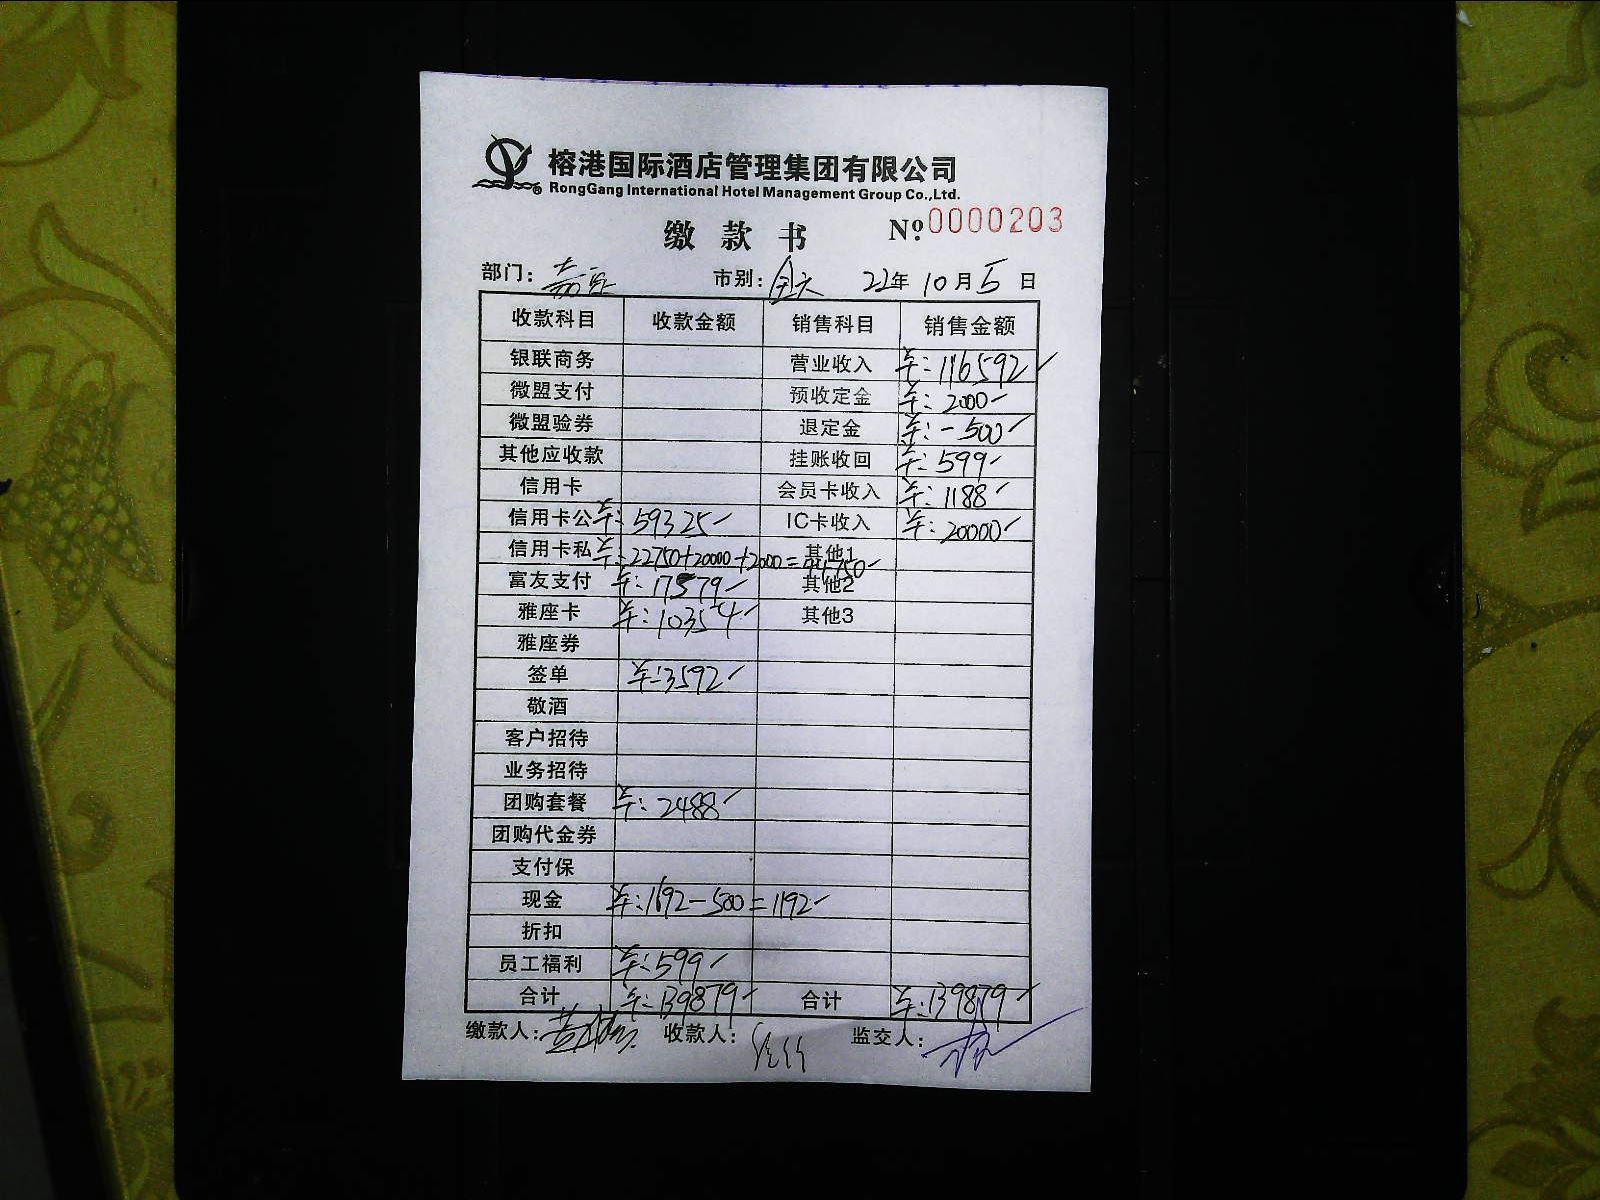 榕港国际酒店管理集团有限公司
RongGang International Hotel Management Group Co.,Ltd.
缴款书 Nº.0000203
部门: 嘉宾 市别: 全天 22年10月5日
收款科目 收款金额 销售科目 销售金额
银联商务 营业收入 ¥:116592
微盟支付 预收定金 ¥:2000
微盟验券 退定金 ¥:-500
其他应收款 挂账收回 ¥:599
信用卡 会员卡收入 ¥:1188
信用卡公 ¥:59325 IC卡收入 ¥:20000
信用卡私 ¥:22750+20000+2000=44750 其他1
富友支付 ¥:17579 其他2
雅座卡 ¥:10354 其他3
雅座券
签单 ¥:3592
敬酒
客户招待
业务招待
团购套餐 ¥:2488
团购代金券
支付保
现金 ¥:1692-500=1192
折扣
员工福利 ¥:599
合计 ¥:139879 合计 ¥:139879
缴款人: 收款人: 监交人: